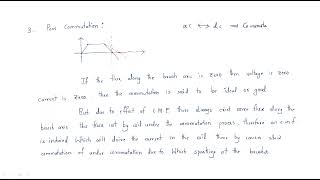 3. Poor Commutation: ac ↔ dc ⇒ Commuta
If the flux along the brush axis is zero then voltage is zero,
current is zero then the commutation is said to be ideal or good.
But due to effect of C.M.F. there always exist some flux along the
brush axis the flux cut by coil under the commutation process. Therefore an e.m.f
is induced which will drive the current in the coil there by causes slow
commutation or under commutation due to which sparking at the brushes.